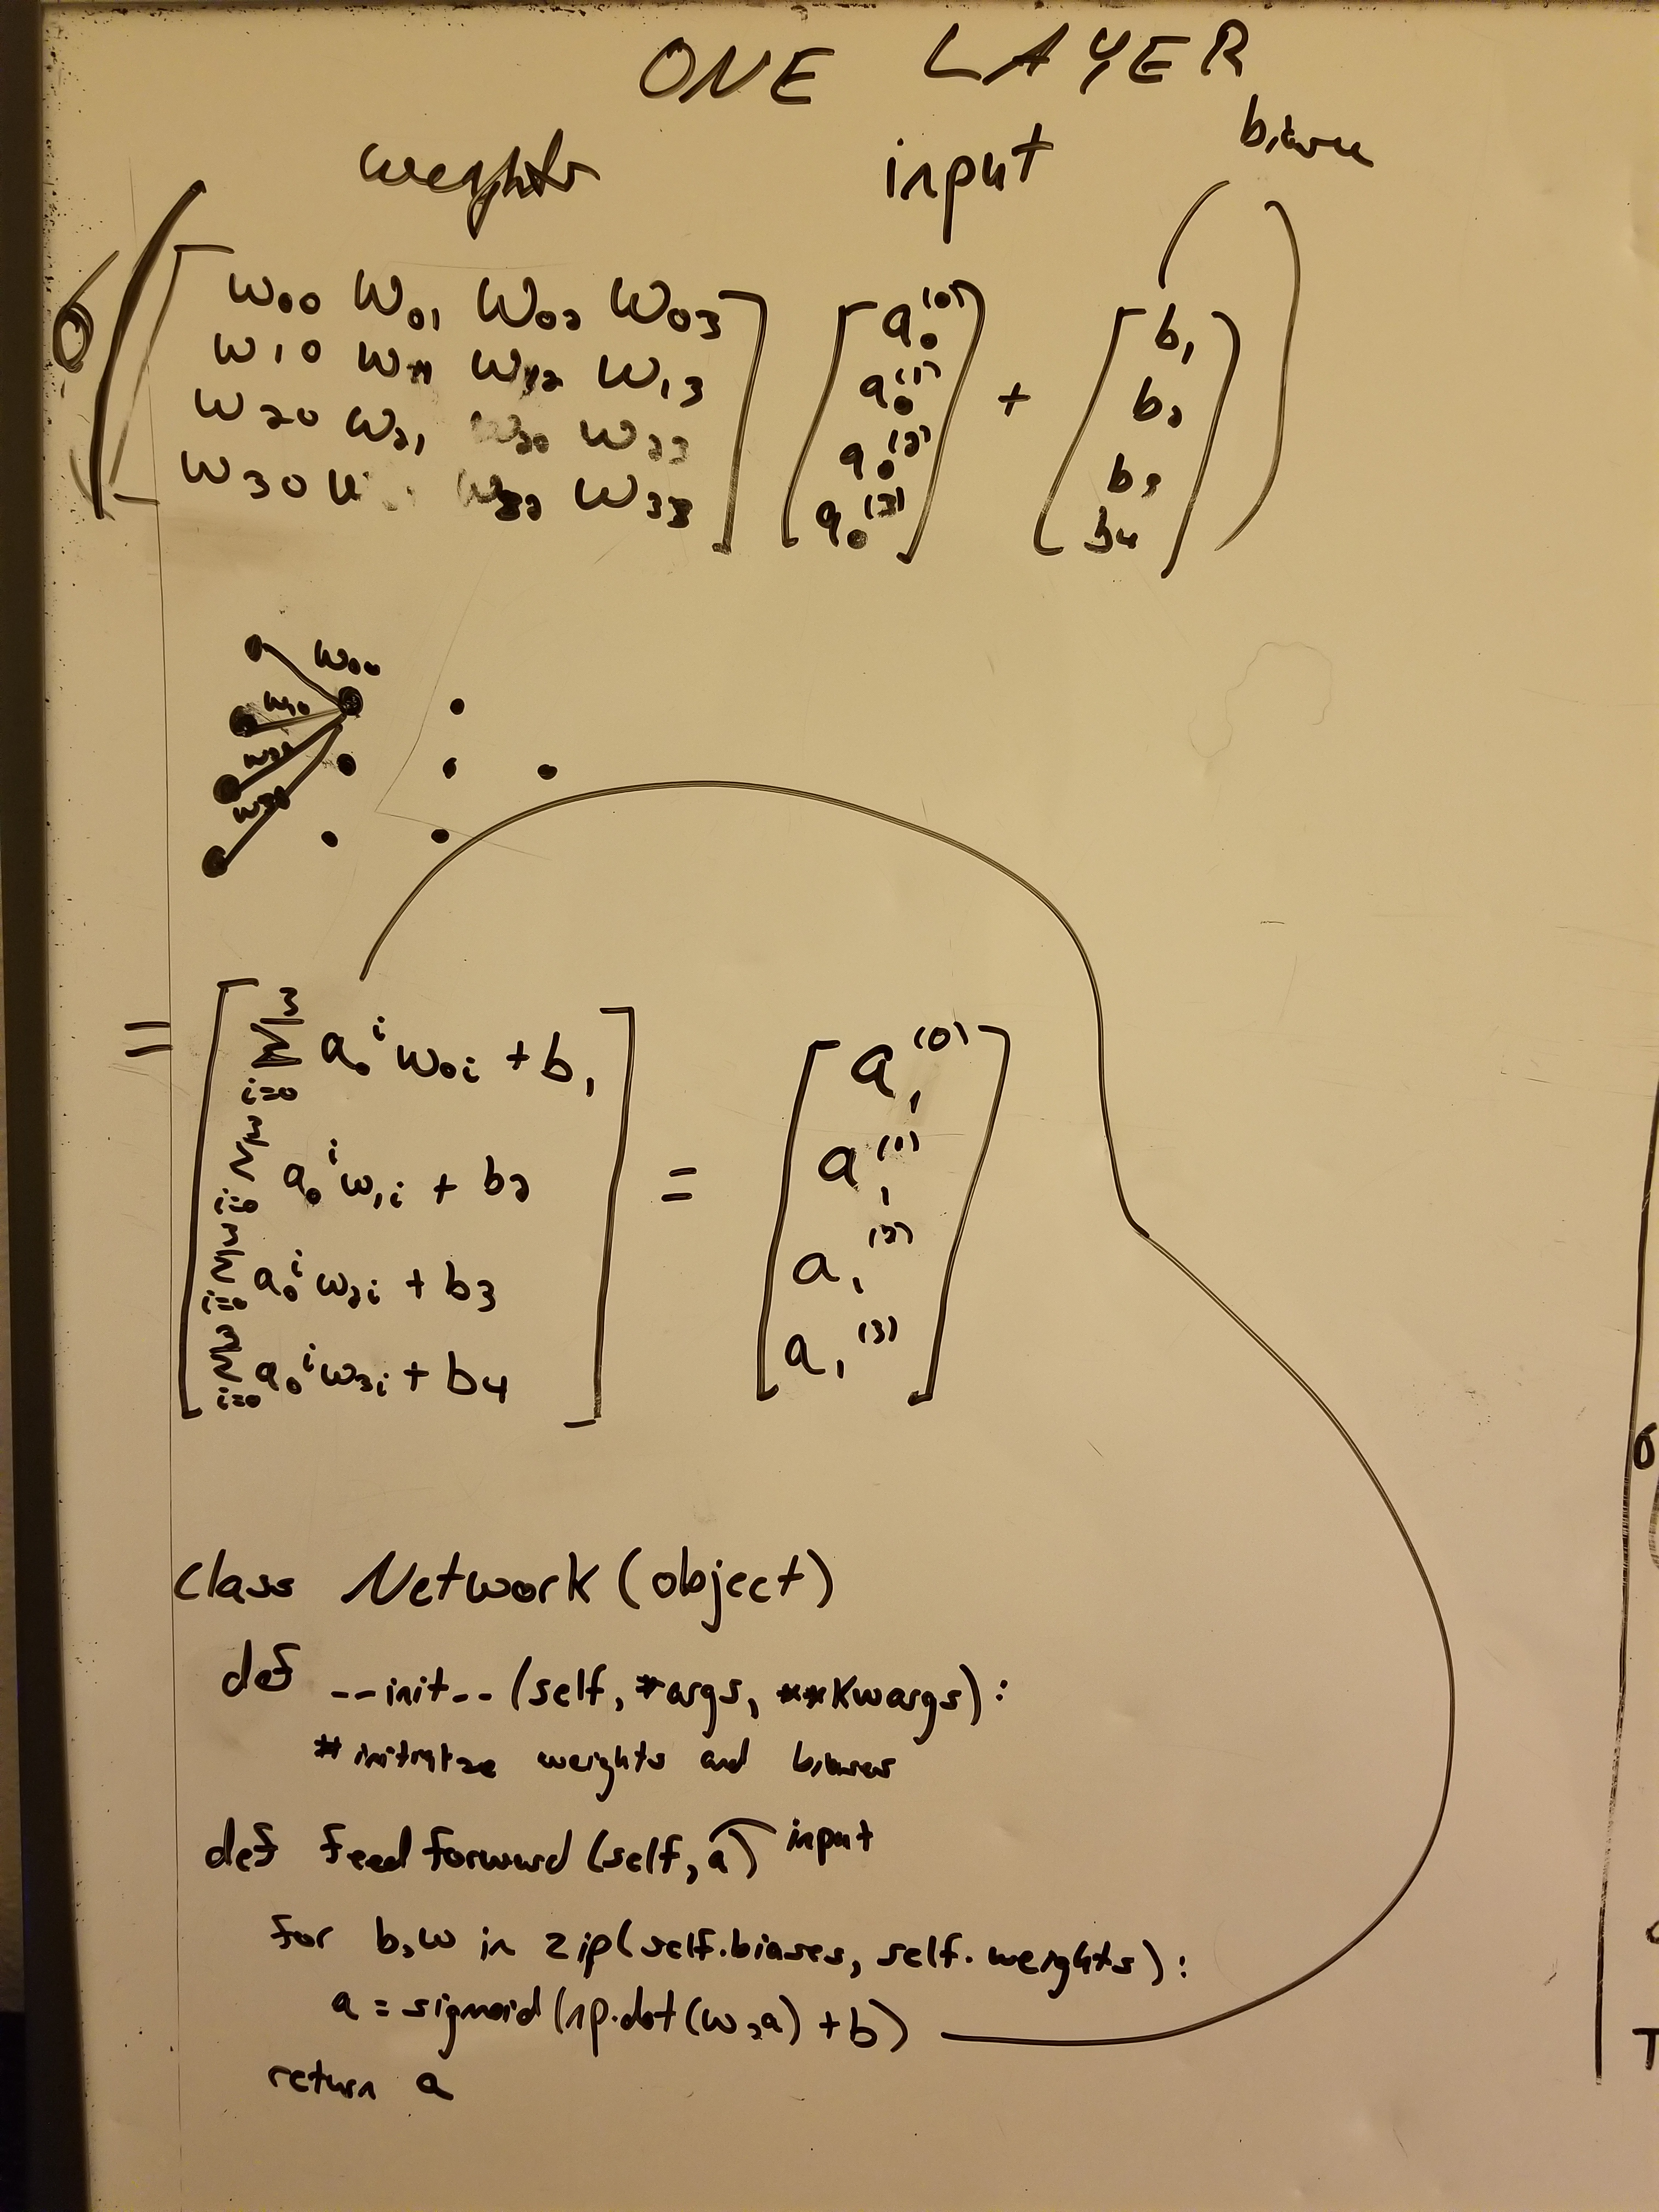 ONE LAYER
weights input biases
σ ( [ w00 w01 w02 w03 ] [ a0^(0) ] + [ b1 ] )
w10 w11 w12 w13 a0^(1) b2
w20 w21 w22 a0^(2) b3
w30 w32 w33 a0^(3) b4
w00
w10
w20
w30
= [ Σ_{i=0}^{3} a0^i w0i + b1 ] [ a1^(0) ]
Σ_{i=0}^{3} a0^i w1i + b2 = a1^(1)
Σ_{i=0}^{3} a0^i w2i + b3 a1^(2)
Σ_{i=0}^{3} a0^i w3i + b4 a1^(3)
class Network (object)
def __init__ (self, *args, **kwargs):
# initialize weights and biases
def feedforward (self, a) input
for b, w in zip(self.biases, self.weights):
a = sigmoid(np.dot(w, a) + b)
return a